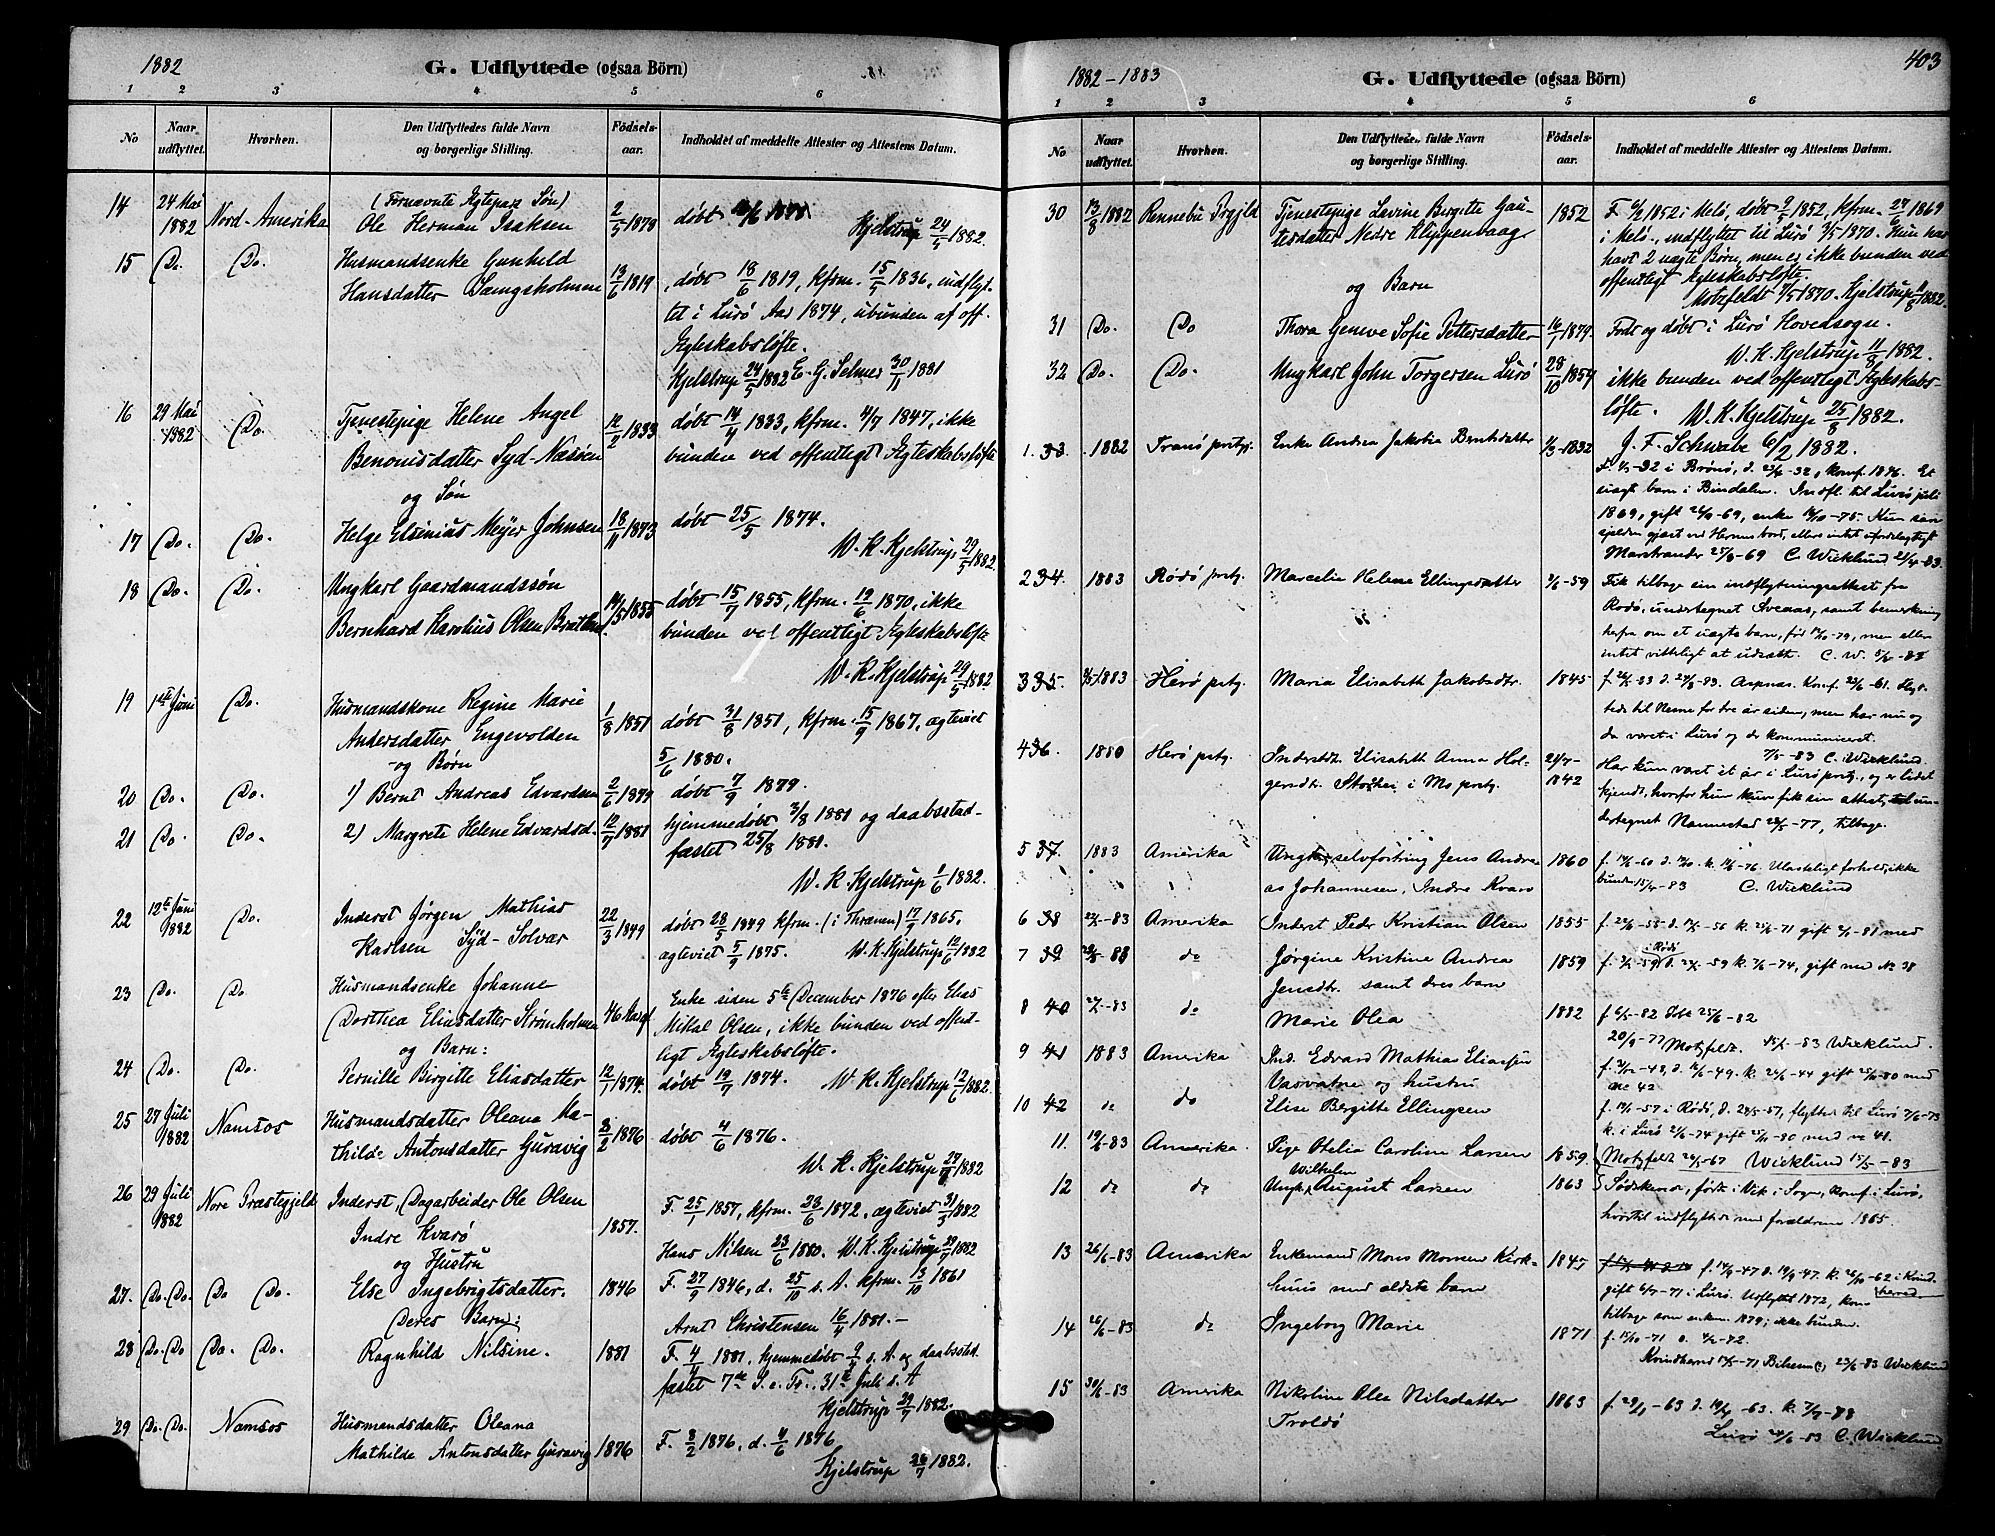 1882
G. Udflyttede (ogsaa Börn)
1 2 3 4 5 6
No
Naar udflyttet.
Hvorhen.
Den Udflyttedes fulde Navn og borgerlige Stilling.
Födsels-aar.
Indholdet af meddelte Attester og Attestens Datum.
14 24 Mai 1882 Nord-Amerika (Fornævnte Ægtepars Søn)
Ole Herman Isaksen 2/5 1878 døbt
Kjelstrup 24/5 1882.
15 Do. Do. Husmandsenke Gunhild
Hansdatter Sæmgsholmen 13/6 1819 , døbt 18/6 1819, kfrm. 1836, indflyt-
tet i Lurö Aar 1874, ubunden af off.
Ægteskabsløfte.
Kjelstrup 24/5 1882 E. G. Selmer 30/11 1881
16 29 Mai 1882 Do. Tjenestepige Helene Angel
Benonisdatter Syd-Næsöen 12/2 1833 døbt 14/4 1833, kfrm. 4/7 1847, ikke
bunden ved offentligt Ægteskabsløfte
og Søn
17 Do. Do. Helge Elsenius Meyer Johnsen 18/11 1873 døbt 25/5 1874.
W. K. Kjelstrup 29/5 1882.
18 Do. Do. Ungkarl Gaardmandssøn
Bernhard Karolius Olsen Bratland 14/5 1855 døbt 15/7 1855, kfrm. 19/6 1870, ikke
bunden ved offentligt Ægteskabsløfte
W. K. Kjelstrup 29/5 1882.
19 1ste Juni Do. Husmandskone Regine Marie
Andersdatter Engevolden 1/8 1851 døbt 31/8 1851, kfrm. 15/9 1867, ægteviet
5/6 1880.
og Børn
20 Do. Do. 1) Bernt Andreas Edvardsen 2/6 1879 døbt 7/9 1879.
21 Do. Do. 2) Margrete Helene Edvardsd. 12/7 1881 hjemmedøbt 3/8 1881 og daabsstad-
fæstet 25/8 1881.
W. K. Kjelstrup 1/6 1882.
22 12te Juni 1882 Do. Inderst Jørgen Mathias
Karlsen Syd-Solvær 22/3 1849 døbt 28/5 1849 kfrm. (i Thrænen) 17/9 1865.
ægteviet 5/9 1875. W. K. Kjelstrup 12/6 1882
23 Do. Do. Husmandsenke Johanne
Dorthea Eliasdatter Strømholmen 46 Aar gl. Enke siden 5te December 1876 efter Elias
Mikal Olsen, ikke bunden ved offent-
ligt Ægteskabsløfte.
og Barn:
24 Do. Do. Pernille Birgitte Eliasdatter 12/1 1874. døbt 19/7 1874. W. K. Kjelstrup 12/6 1882.
25 27 Juli 1882 Namsos Husmandsdatter Oleana Ma-
thilde Antonsdatter Guravig 8/2 1876 døbt 4/6 1876.
W. K. Kjelstrup 27/7 1882
26 29 Juli 1882 Nore Præstegjeld Inderst, Dagarbeider Ole Olsen
Indre Kvarø 1857. F. 25/1 1857, kfrm. 23/6 1872, ægteviet 31/3 1882
Hans Nilsen 23/6 1880. W. K. Kjelstrup 29/7 1882
og Hustru
27. Do. Do. Do Do. Else Ingebrigtsdatter. 1846 F. 27/9 1846, d. 25/10 s. A. kfrm. 13/10 1861
Arnt Christensen 16/4 1881.-
Deres Barn:
28 Do. Do Do. Do. Ragnhild Nilsine. 1881 F. 4/4 1881, hjemmedøbt s. A. og daabsstad-
fæstet 7de S. e. Tr., 31te Juli s. A
Kjelstrup 29/7 1882.
29 Do. Do. Namsos Husmandsdatter Oleana
Mathilde Antonsdatter Guravig 1876 F. 8/2 1876, d. 4/6 1876
Kjelstrup 26/7 1882.
1882-1883
G. Udflyttede (ogsaa Börn)
403
1 2 3 4 5 6
No
Naar udflyttet.
Hvorhen.
Den Udflyttedes fulde Navn og borgerlige Stilling.
Födsels-aar.
Indholdet af meddelte Attester og Attestens Datum.
30 13/8 1882 Rennebu Prgjld Tjenestepige Lavine Bergitte Gau-
tesdatter Nedre Klippenvaag 1852 F. 1852 i Melö, døbt 1852, kfrm. 1869
i Melö., indflyttet til Lurö 1870. Hun har
havt 2 uægte Børn, men er ikke bunden ved
offentligt Ægteskabsløfte
Motzfeldt 1870. Kjelstrup 1882.
og Barn
31 Do. Do Thora Geneve Sofie Pettersdatter 16/1 1879. Født og døbt i Lurö Hovedsogn.
W. K. Kjelstrup 11/8 1882.
32 Do. Do. Ungkarl John Torgersen Lurö 28/10 1859 ikke bunden ved offentligt Ægteskabs-
løfte. W. K. Kjelstrup 25/8 1882.
1. 33. 1882 Tranö prstgj. Enke Andrea Jakobia Berntsdatter 1/3-1832 J. F. Schwabe 6/2 1882.
i Brönö, d. 23/4-32, konf. 1846. Et
uægt barn i Bindalen. Indfl. til Lurö juli
1869, gift 24/6-69, enke 14/10-75. Kun san
sjelden gjæst ved Herrens bord, ellers intet ufordelagtigt
Marstrander 25/8-69 C. Wicklund 21/4-83.
2 34. 1883 Rödö prstgj. Marcelie Helene Ellingsdatter 2/6-59 Fik tilbage sin indflytningsattest fra
Rödö, undertegnet Sveaas, samt bemærkning
herfra om et uægte barn, föd 14/10-79, men ellers
intet vitterligt at udsætte. C. W.
3 35. 1883 Herö prstgj. Maria Elisabeth Jakobsdtr. 1845 Aspnæs. Konf. 23/6-61. Flyt-
tede til Nesne for tre år siden, men har nu og
da været i Lurö og der kommuniceret.
7/5-83 C. Wicklund
4 36. 1880 Herö prstgj. Inderstdtr. Elisabeth Anna Hol-
gersdtr. Storhei i Mo prstgj. 24/7-1842 Har kun været et år i Lurö prstgj., og er lidet
kjendt, hvorfor hun kun fik sin attest, un-
dertegnet Nannestad 28/5-77, tilbage.
5 37. 1883 Amerika Ungk. selvforsörg. Jens Andre
as Johannesen, Indre Kvarö 1860 Ulasteligt forhold, ikke
bunden 15/4-83 C. Wicklund
6 38 22/5-83 Amerika Inderst Peder Kristian Olsen 1855 gift med
7 39 do Jörgine Kristine Andrea
Jensdtr. samt deres barn 1859 i Rödö gift med No 38
8 40 do Marie Olea 1882 f 6/5-82 Döbt 25/6-82
20/9-77 Motzfeldt. 15/5-83 Wicklund.
9 41 1883 Amerika Ind. Edvard Mathias Eliassen
Vasvatnet og hustru gift 25/10-80 med
no 42
10 42 do do Elise Bergitte Ellingsen i Rödö, d. 24/5-57, flyttede til Lurö
k. i Lurö gift 25/10-80 med no 41.
11. 19/6-83 Amerika. Pige Otelia Caroline Larsen 1859 Motzfeldt 24/5-67 Wicklund 15/5-83
12 do do Ungk. Wilhelm August Larsen 1863 Södskende, födte i Vik i Sogn, konf. i Lurö,
hvortil indflyttede med forældrene 1865.
13 26/6-83 Amerika Enkemand Mons Monsen Kirk-
huus med ældste barn 1847 f. 14/9-47 d. 19/9-47. k. i Kvindherred
gift 6/7-71 i Lurö. Udflyttet 1872, kom
tilbage som enkem. 1879; ikke bunden.
14 26/6-83 do Ingeborg Marie 1871
Kvindherred Wicklund
15 30/6-83 Amerika Nikoline Olea Nilsdatter
Troldö 1863
Lurö C. Wicklund